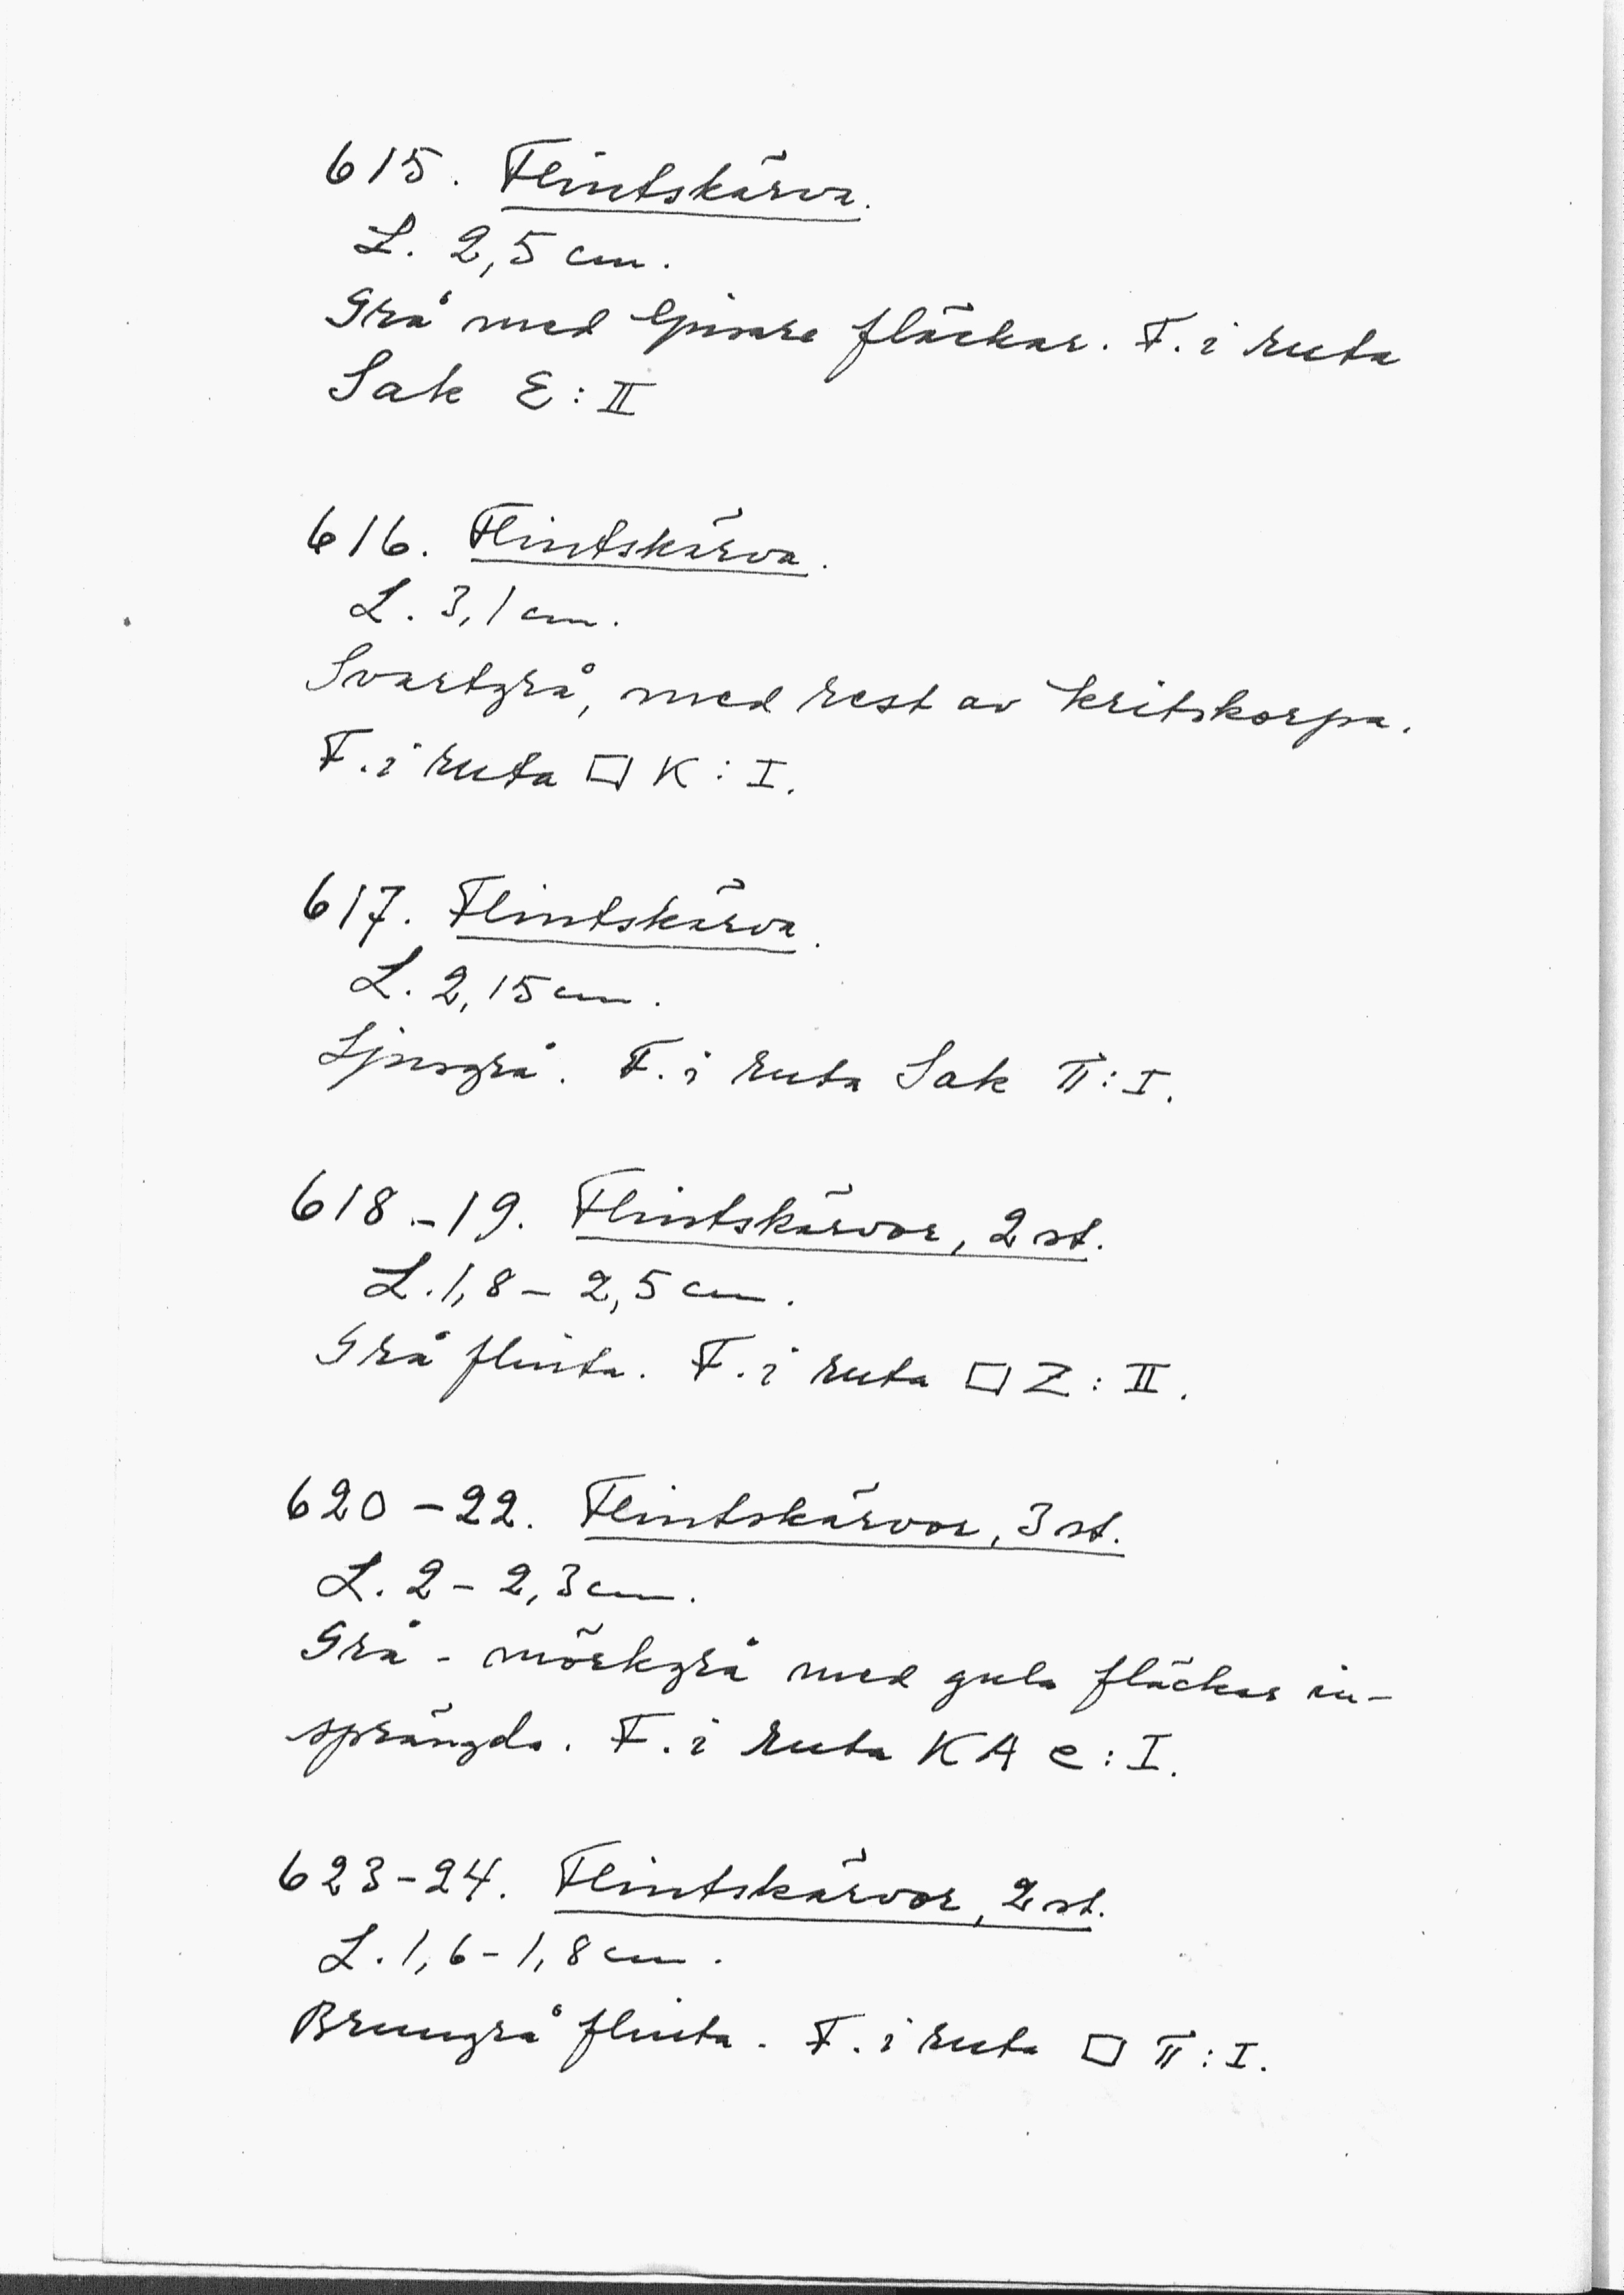 615. Flintskärva.
L. 2,5 cm.
Grå med ljusare fläckar. F. i ruta
Sak E : II
616. Flintskärva.
L. 3,1 cm.
Svartgrå, med rest av kritskorpa.
F. i ruta □ K : I.
617. Flintskärva.
L. 2,15 cm.
Ljusgrå. F. i ruta Sak π : I.
618-19. Flintskärvor, 2 st.
L. 1,8 - 2,5 cm.
Grå flinta. F. i ruta □ Z : II.
620-22. Flintskärvor, 3 st.
L. 2 - 2,3 cm.
Grå - mörkgrå med gula fläckar in-
sprängda. F. i ruta KA e : I.
623-24. Flintskärvor, 2 st.
L. 1,6 - 1,8 cm.
Brungrå flinta. F. i ruta □ π : I.